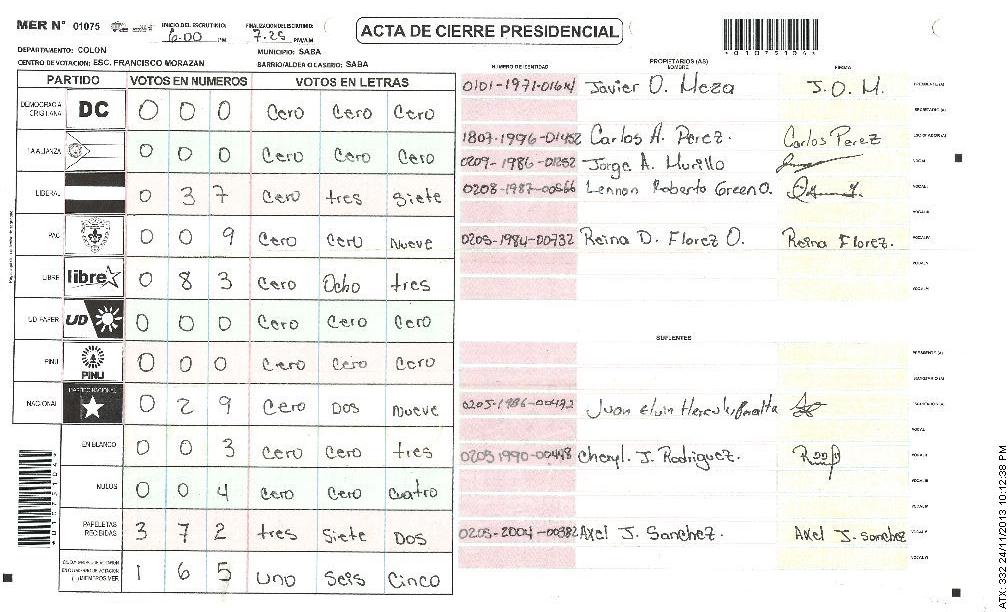 MER N° 01075 INICIO DEL ESCRUTINIO: 6:00 PM FINALIZACIÓN DEL ESCRUTINIO: 7:25 PM/AM ACTA DE CIERRE PRESIDENCIAL
DEPARTAMENTO: COLON MUNICIPIO: SABA
CENTRO DE VOTACIÓN: ESC. FRANCISCO MORAZAN BARRIO/ALDEA O CASERIO: SABA
PARTIDO VOTOS EN NUMEROS VOTOS EN LETRAS
DEMOCRACIA CRISTIANA DC 0 0 0 Cero Cero Cero
LA ALIANZA 0 0 0 Cero Cero Cero
LIBERAL 0 3 7 Cero tres Siete
PAC 0 0 9 Cero Cero Nueve
LIBRE libre 0 8 3 Cero Ocho tres
UD FAPER UD 0 0 0 Cero Cero Cero
PINU PINU 0 0 0 Cero Cero Cero
NACIONAL PARTIDO NACIONAL 0 2 9 Cero Dos Nueve
EN BLANCO 0 0 3 Cero Cero tres
NULOS 0 0 4 Cero Cero Cuatro
PAPELETAS RECIBIDAS 3 7 2 tres Siete Dos
1 6 5 Uno Seis Cinco
NUMERO DE IDENTIDAD PROPIETARIOS (AS) NOMBRE FIRMA
0101-1971-01641 Javier O. Meza J.O.M. PRESIDENTE (A)
SECRETARIO (A)
1807-1996-01452 Carlos A. Perez. Carlos Perez ESCRUTADOR (A)
0209-1986-01252 Jorge A. Murillo VOCAL I
0208-1987-00566 Lennon Roberto Green O. VOCAL II
VOCAL III
0205-1984-00732 Reina D. Florez O. Reina Florez. VOCAL IV
VOCAL V
VOCAL VI
SUPLENTES
PRESIDENTE (A)
SECRETARIO (A)
0205-1986-00472 Juan Elvin ESCRUTADOR (A)
VOCAL I
0205 1990-00448 Cheryl. J. Rodriguez. VOCAL II
VOCAL III
0205-2004-00382 Axel J. Sanchez. Axel J. Sanchez VOCAL V
VOCAL VI
01075104
01075104
ATX: 332 24/11/2013 10:12:38 PM